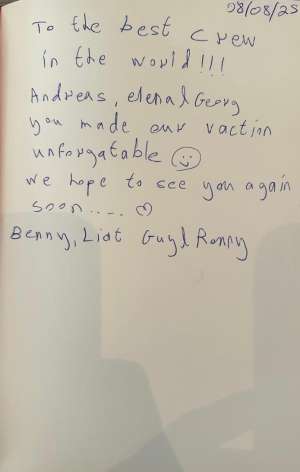 08/08/25
To the best crew
in the world!!!
Andreas, elena & Georg
you made our vaction
unforgatable ☺
we hope to see you again
soon.... ♡
Benny, Liat Guy & Ronny